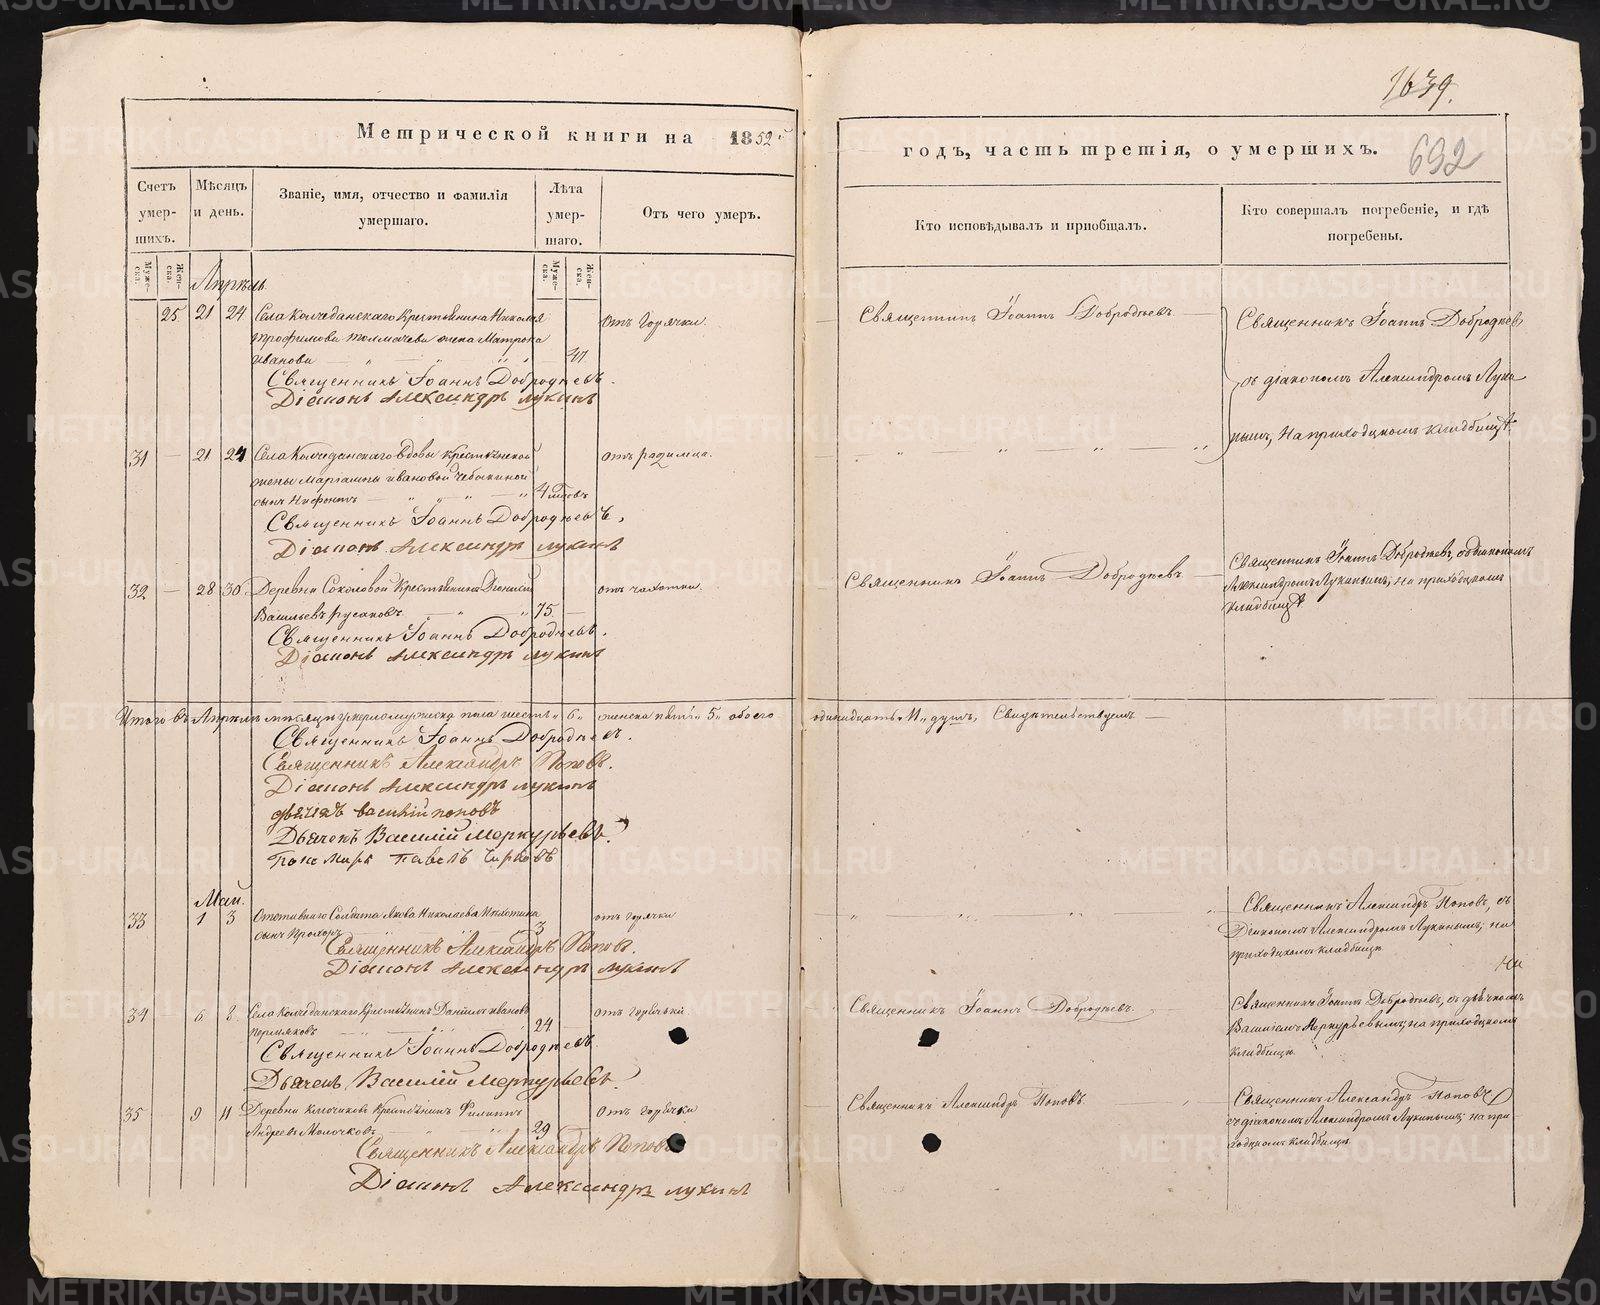 1639.
692
Метрической книги на 1852 годъ, часть третія, о умершихъ.
Счетъ умер- шихъ.
Мѣсяцъ и день.
Званіе, имя, отчество и фамилія умершаго.
Лѣта умер- шаго.
Отъ чего умеръ.
Кто исповѣдывалъ и пріобщалъ.
Кто совершалъ погребеніе, и гдѣ погребены.
Муже- ска.
Жен- ска.
Муже- ска.
Жен- ска.
Апрѣль
25 21 24 Села Колчеданскаго Крестьянина Николая
Трофимова Толмачева жена Матрона
Иванова 47
отъ горячки.
Священникъ Іоаннъ Добродѣевъ
Священникъ Іоаннъ Добродѣевъ
съ діакономъ Александромъ Луки
нымъ, На приходскомъ кладбищѣ
Священникъ Іоаннъ Добродѣевъ.
Діаконъ Александръ Лукинъ
31 — 21 24 Села Колчеданскаго вдовы крестьянской
жены Ивановой
сынъ 4
отъ родимца.
Священникъ Іоаннъ Добродѣевъ,
Діаконъ Александръ Лукинъ
32 — 28 30 Деревни Соколовой Крестьянинъ Діонисій
Васильевъ Русаковъ 75 —
отъ чахотки.
Священникъ Іоаннъ Добродѣевъ
Священникъ Іоаннъ Добродѣевъ, съ діакономъ
Александромъ Лукинымъ, на приходскомъ
кладбищѣ
Священникъ Іоаннъ Добродѣевъ.
Діаконъ Александръ Лукинъ
Итого въ Апрѣлѣ мѣсяцѣ умерло мужеска пола шесть „6„ женска пять „5„ обоего одинадцать „11„ душъ, Свидѣтельствуемъ —
Священникъ Іоаннъ Добродѣевъ.
Священникъ Александръ Поповъ.
Діаконъ Александръ Лукинъ
дьячекъ василій поповъ
Дьячекъ Василій Меркурьевъ.
Павелъ
Май.
33 1 3 Солдата Якова Николаева
сынъ Прохоръ 3
отъ горячки
Священникъ Александръ Поповъ, съ
Діакономъ Александромъ Лукинымъ, на
приходскомъ кладбищѣ
Священникъ Александръ Поповъ.
Діаконъ Александръ Лукинъ
34 6 8 Села Колчеданскаго Крестьянинъ Даніилъ Ивановъ
Пермяковъ 24 —
отъ горячки.
Священникъ Іоаннъ Добродѣевъ.
Священникъ Іоаннъ Добродѣевъ, съ дьячкомъ
Василіемъ Меркурьевымъ, на приходскомъ
кладбищѣ
Священникъ Іоаннъ Добродѣевъ
Дьячекъ Василій Меркурьевъ.
35 9 11 Деревни Крестьянинъ Филиппъ
Андреевъ Молочковъ 29
отъ горячки
Священникъ Александръ Поповъ.
Священникъ Александръ Поповъ
съ діакономъ Александромъ Лукинымъ, на при
ходскомъ кладбищѣ
Священникъ Александръ Поповъ
Діаконъ Александръ Лукинъ
METRIKI.GASO-URAL.RU